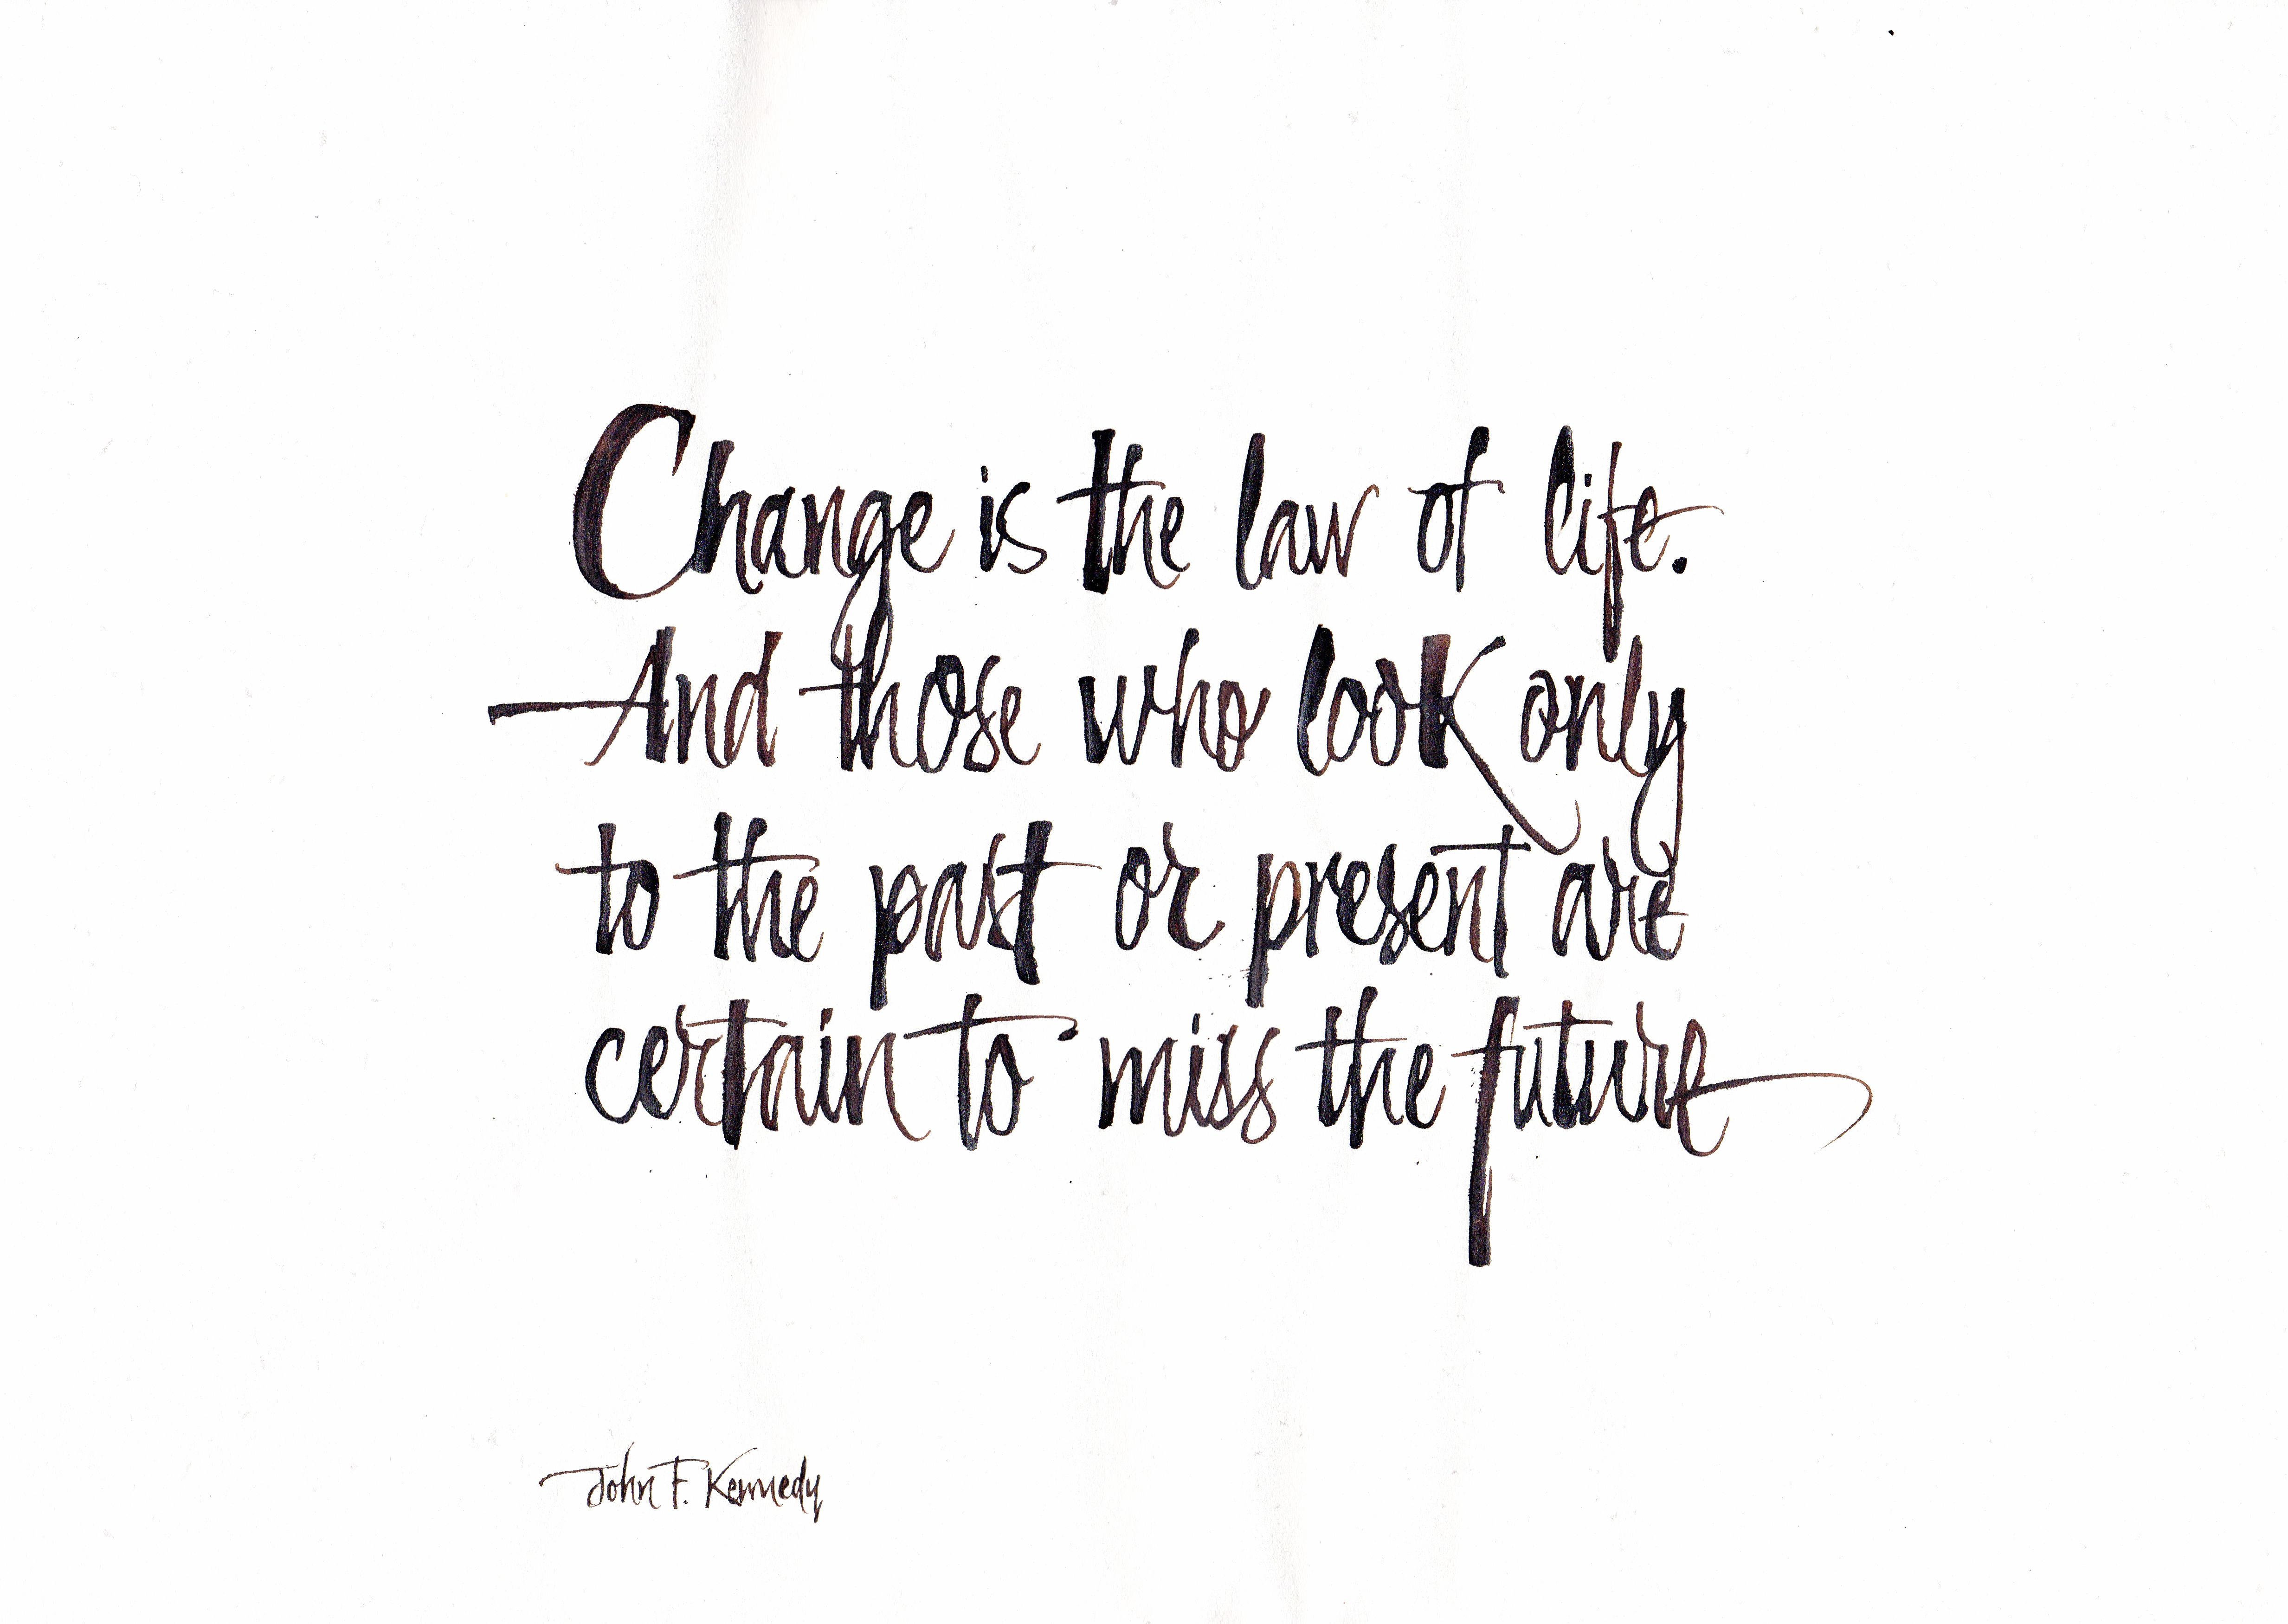 Change is the law of life.
And those who look only
to the past or present are
certain to miss the future
John F. Kennedy